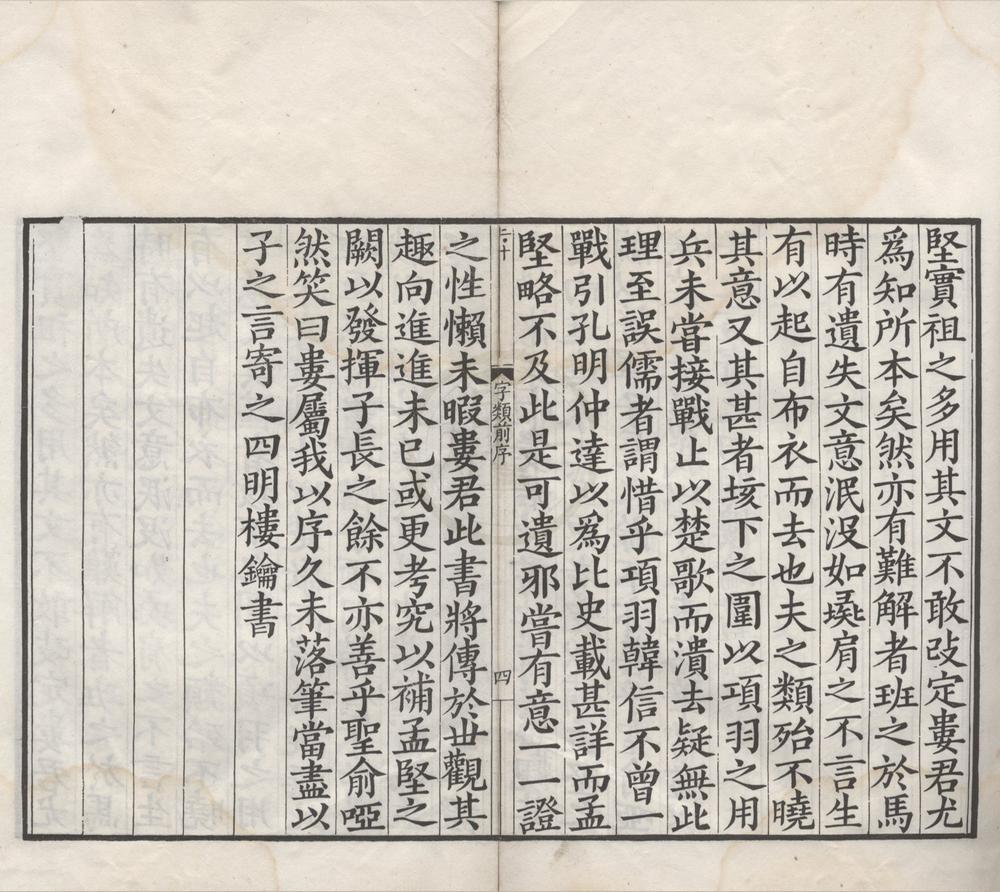 堅實祖之多用其文不敢改定婁君尤
爲知所本矣然亦有難解者班之於馬
時有遺失文意泯沒如彘肩之不言生
有以起自布衣而去也夫之類殆不曉
其意又其甚者垓下之圍以項羽之用
兵未嘗接戰止以楚歌而潰去疑無此
理至誤儒者謂惜乎項羽韓信不曾一
戰引孔明仲達以爲比史載甚詳而孟
堅略不及此是可遺邪嘗有意一一證
字類前序
四
之性懶未暇婁君此書將傳於世觀其
趣向進進未已或更考究以補孟堅之
闕以發揮子長之餘不亦善乎聖俞啞
然笑曰婁屬我以序久未落筆當盡以
子之言寄之四明樓鑰書